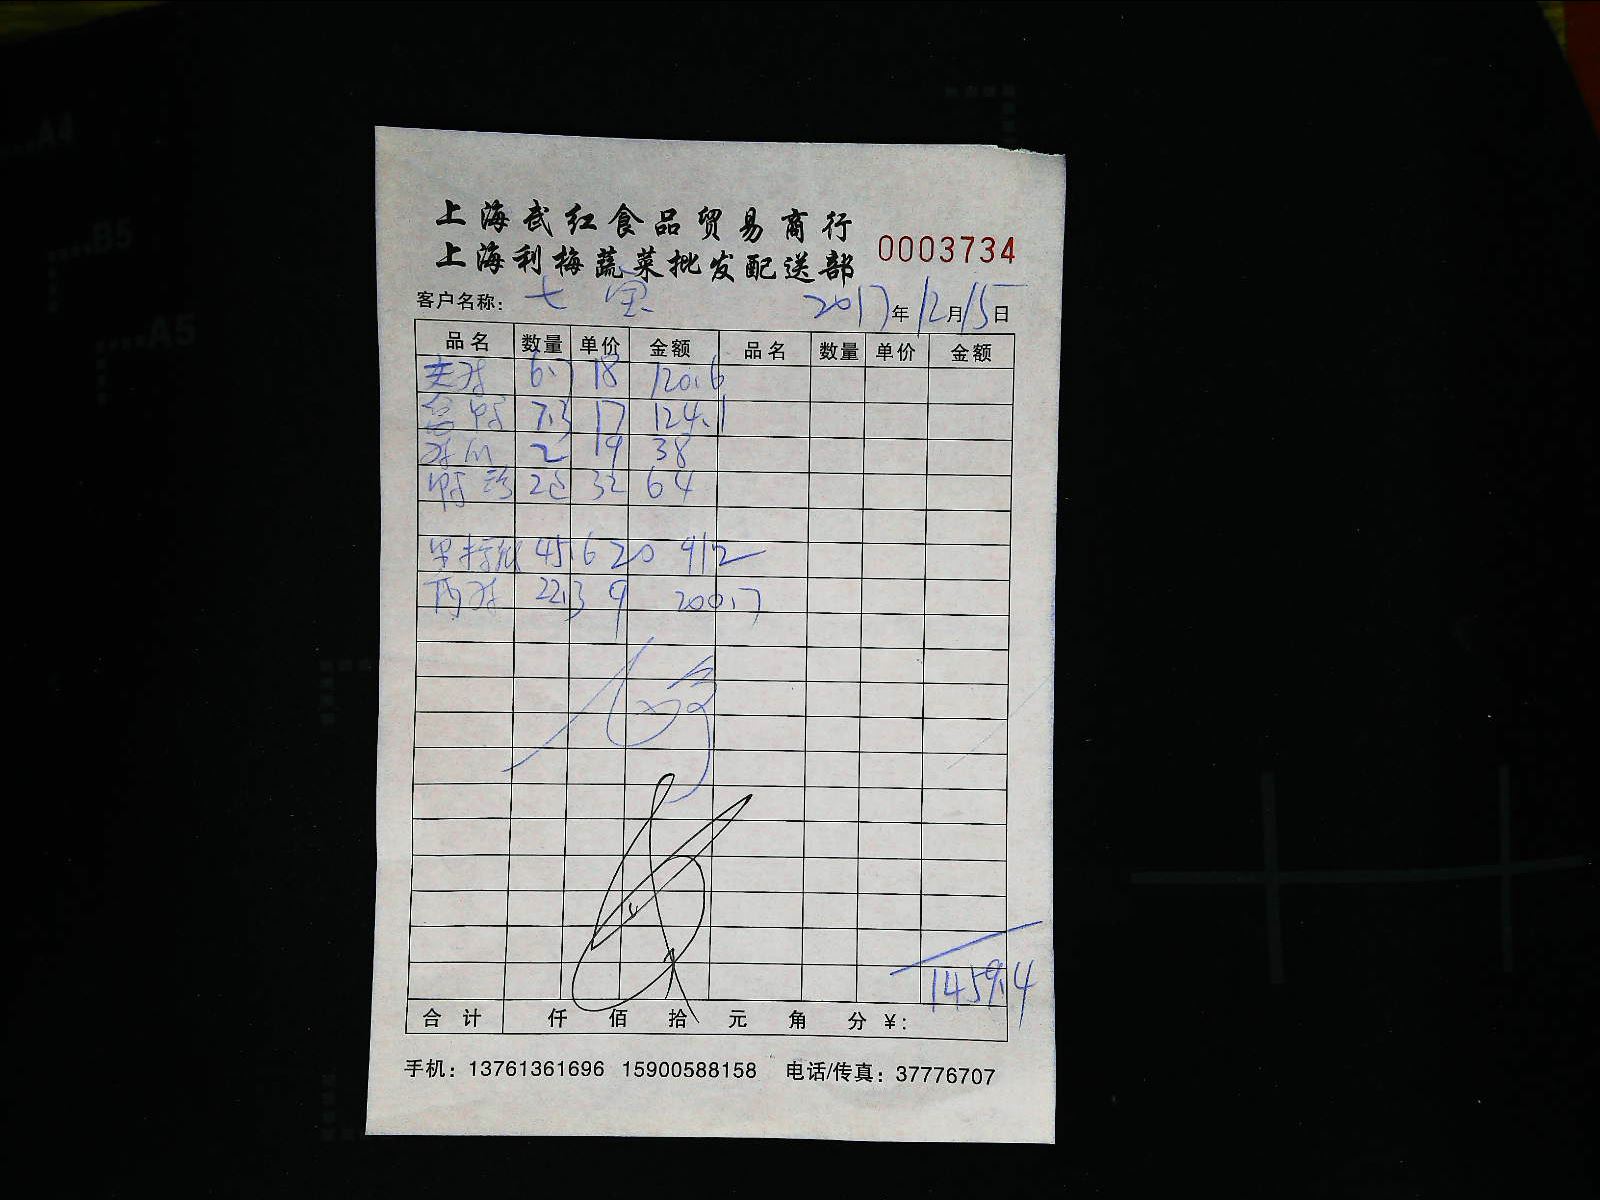 上海武红食品贸易商行
上海利梅蔬菜批发配送部 0003734
客户名称: 七宝 2017年12月15日
品名 数量 单价 金额 品名 数量 单价 金额
6.7 18 120.6
7.3 17 124.1
2 19 38
2 32 64
45.6 20 912
22.3 9 200.7
1459.4
合计 仟 佰 拾 元 角 分 ¥:
手机: 13761361696 15900588158 电话/传真: 37776707
A4
B5
A5